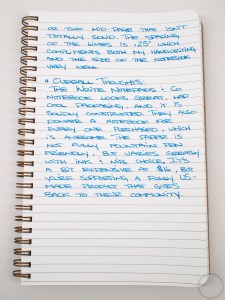 or two mid-page that isn't
totally solid. The spacing
of the lines is .25" which
compliments both my handwriting
and the size of the notebook
very well.
* Overall Thoughts:
The Write Notepads & Co
notebook looks great, has
cool packaging, and it is
solidly constructed. They also
donate a notebook for
every one purchased, which
is awesome. The paper is
not fully fountain pen
friendly, but varies greatly
with ink & nib choice. It's
a bit expensive at $16, but
you're supporting a fully US-
made product that gives
back to their community.